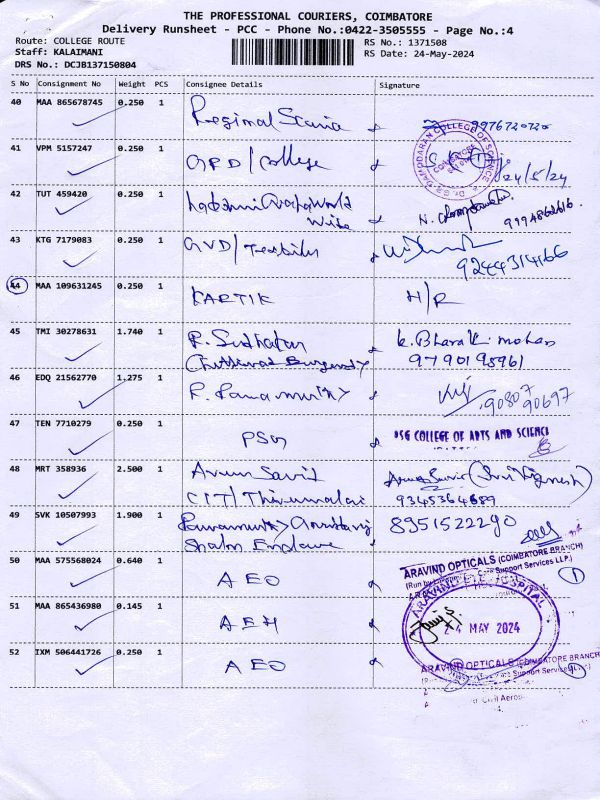 THE PROFESSIONAL COURIERS, COIMBATORE
Delivery Runsheet - PCC - Phone No.:0422-3505555 - Page No.:4
Route: COLLEGE ROUTE RS No.: 1371508
Staff: KALAIMANI RS Date: 24-May-2024
DRS No.: DCJB137150804
S No Consignment No Weight PCS Consignee Details Signature
40 MAA 865678745 0.250 1 Regional 9976720720
41 VPM 5157247 0.250 1 GRD/College 24/5/24
42 TUT 459420 0.250 1 N.
9994862616
43 KTG 7179083 0.250 1 GVD/ 9244314166
44 MAA 109631245 0.250 1 KARTIK H/R
45 TMI 30278631 1.740 1 P. Sudhakar K. Bharathi mohan
9790195961
46 EDQ 21562770 1.275 1 P. 90807
90697
47 TEN 7710279 0.250 1 PSG PSG COLLEGE OF ARTS AND SCIENCE
48 MRT 358936 2.500 1 Arun
CIT/Thirumalai 9345364689
49 SVK 10507993 1.900 1 8951522290
50 MAA 575568024 0.640 1 AEO ARAVIND OPTICALS (COIMBATORE BRANCH)
Support Services LLP.) 1
ARAVIND EYE HOSPITAL
51 MAA 865436980 0.145 1 AEH 24 MAY 2024
52 IXM 506441726 0.250 1 AEO ARAVIND OPTICALS (COIMBATORE BRANCH)
Support Services
Civil Aero